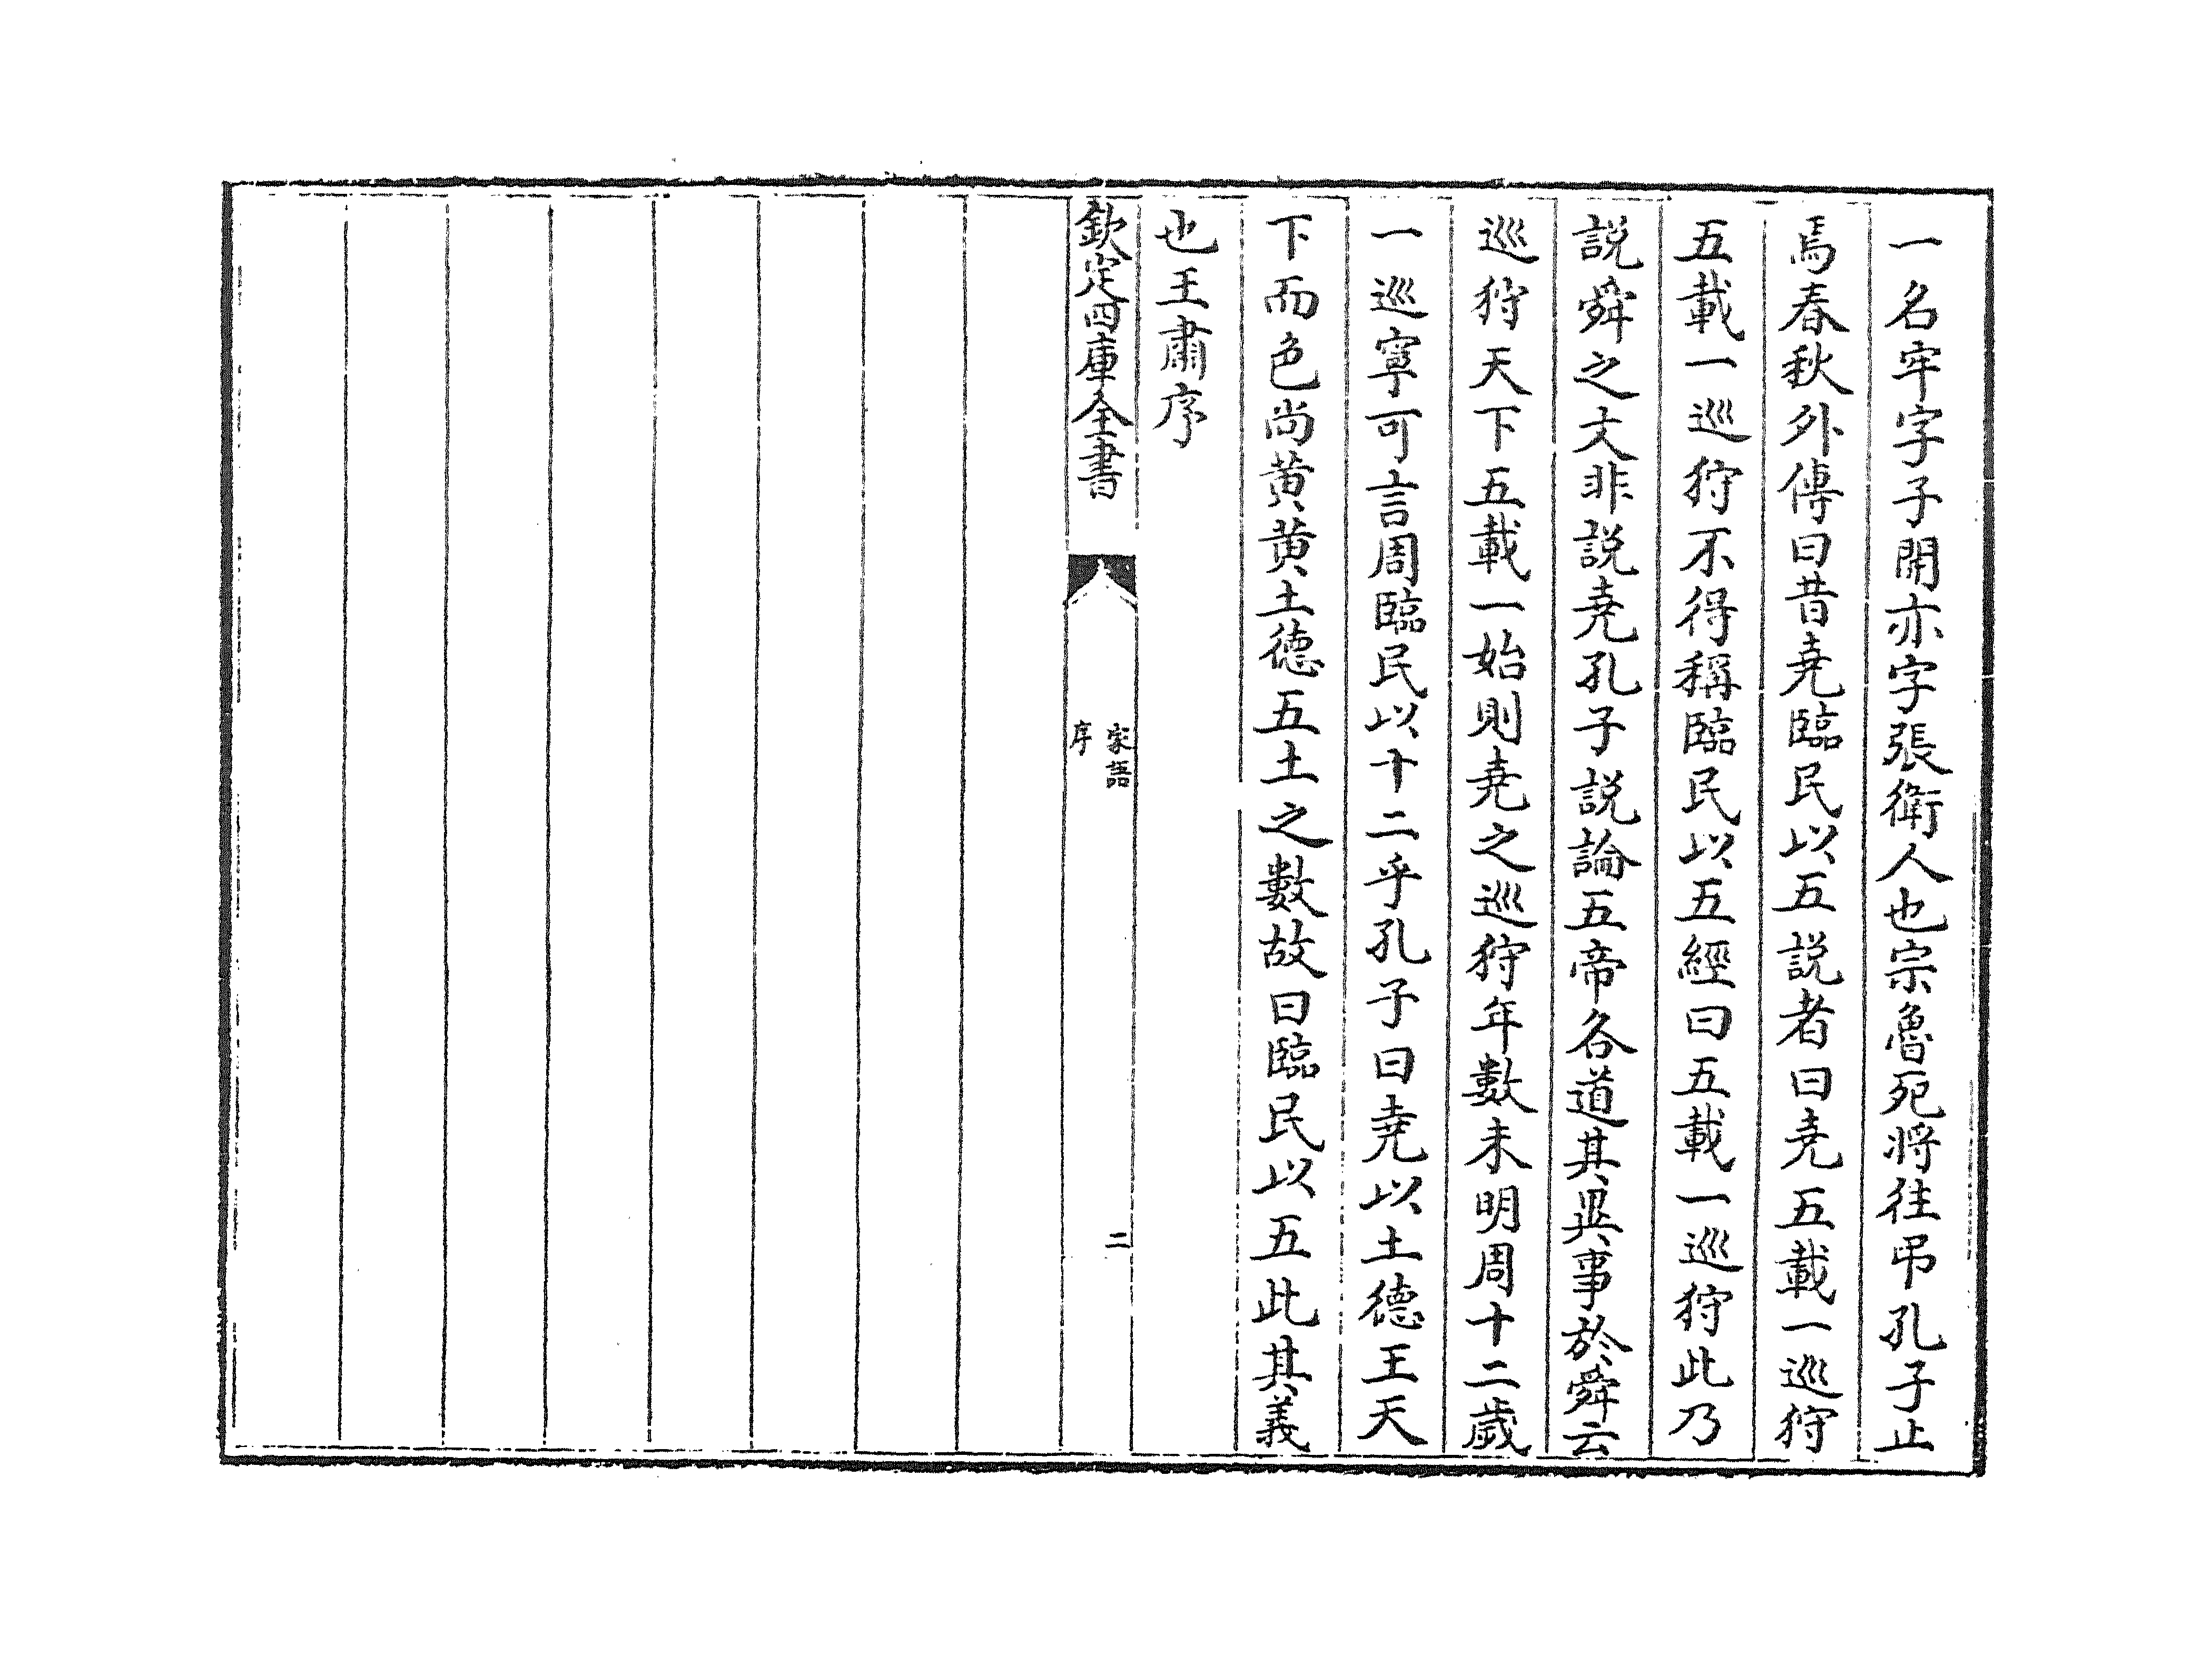 一名牢字子開亦字張衛人也宗魯死將往弔孔子止
焉春秋外傳曰昔堯臨民以五說者曰堯五載一巡狩
五載一巡狩不得稱臨民以五經曰五載一巡狩此乃
說舜之文非說堯孔子說論五帝各道其異事於舜云
巡狩天下五載一始則堯之巡狩年數未明周十二歲
一巡寧可言周臨民以十二乎孔子曰堯以土德王天
下而色尚黃黃土德五土之數故曰臨民以五此其義
也王肅序
欽定四庫全書
家語
序
二